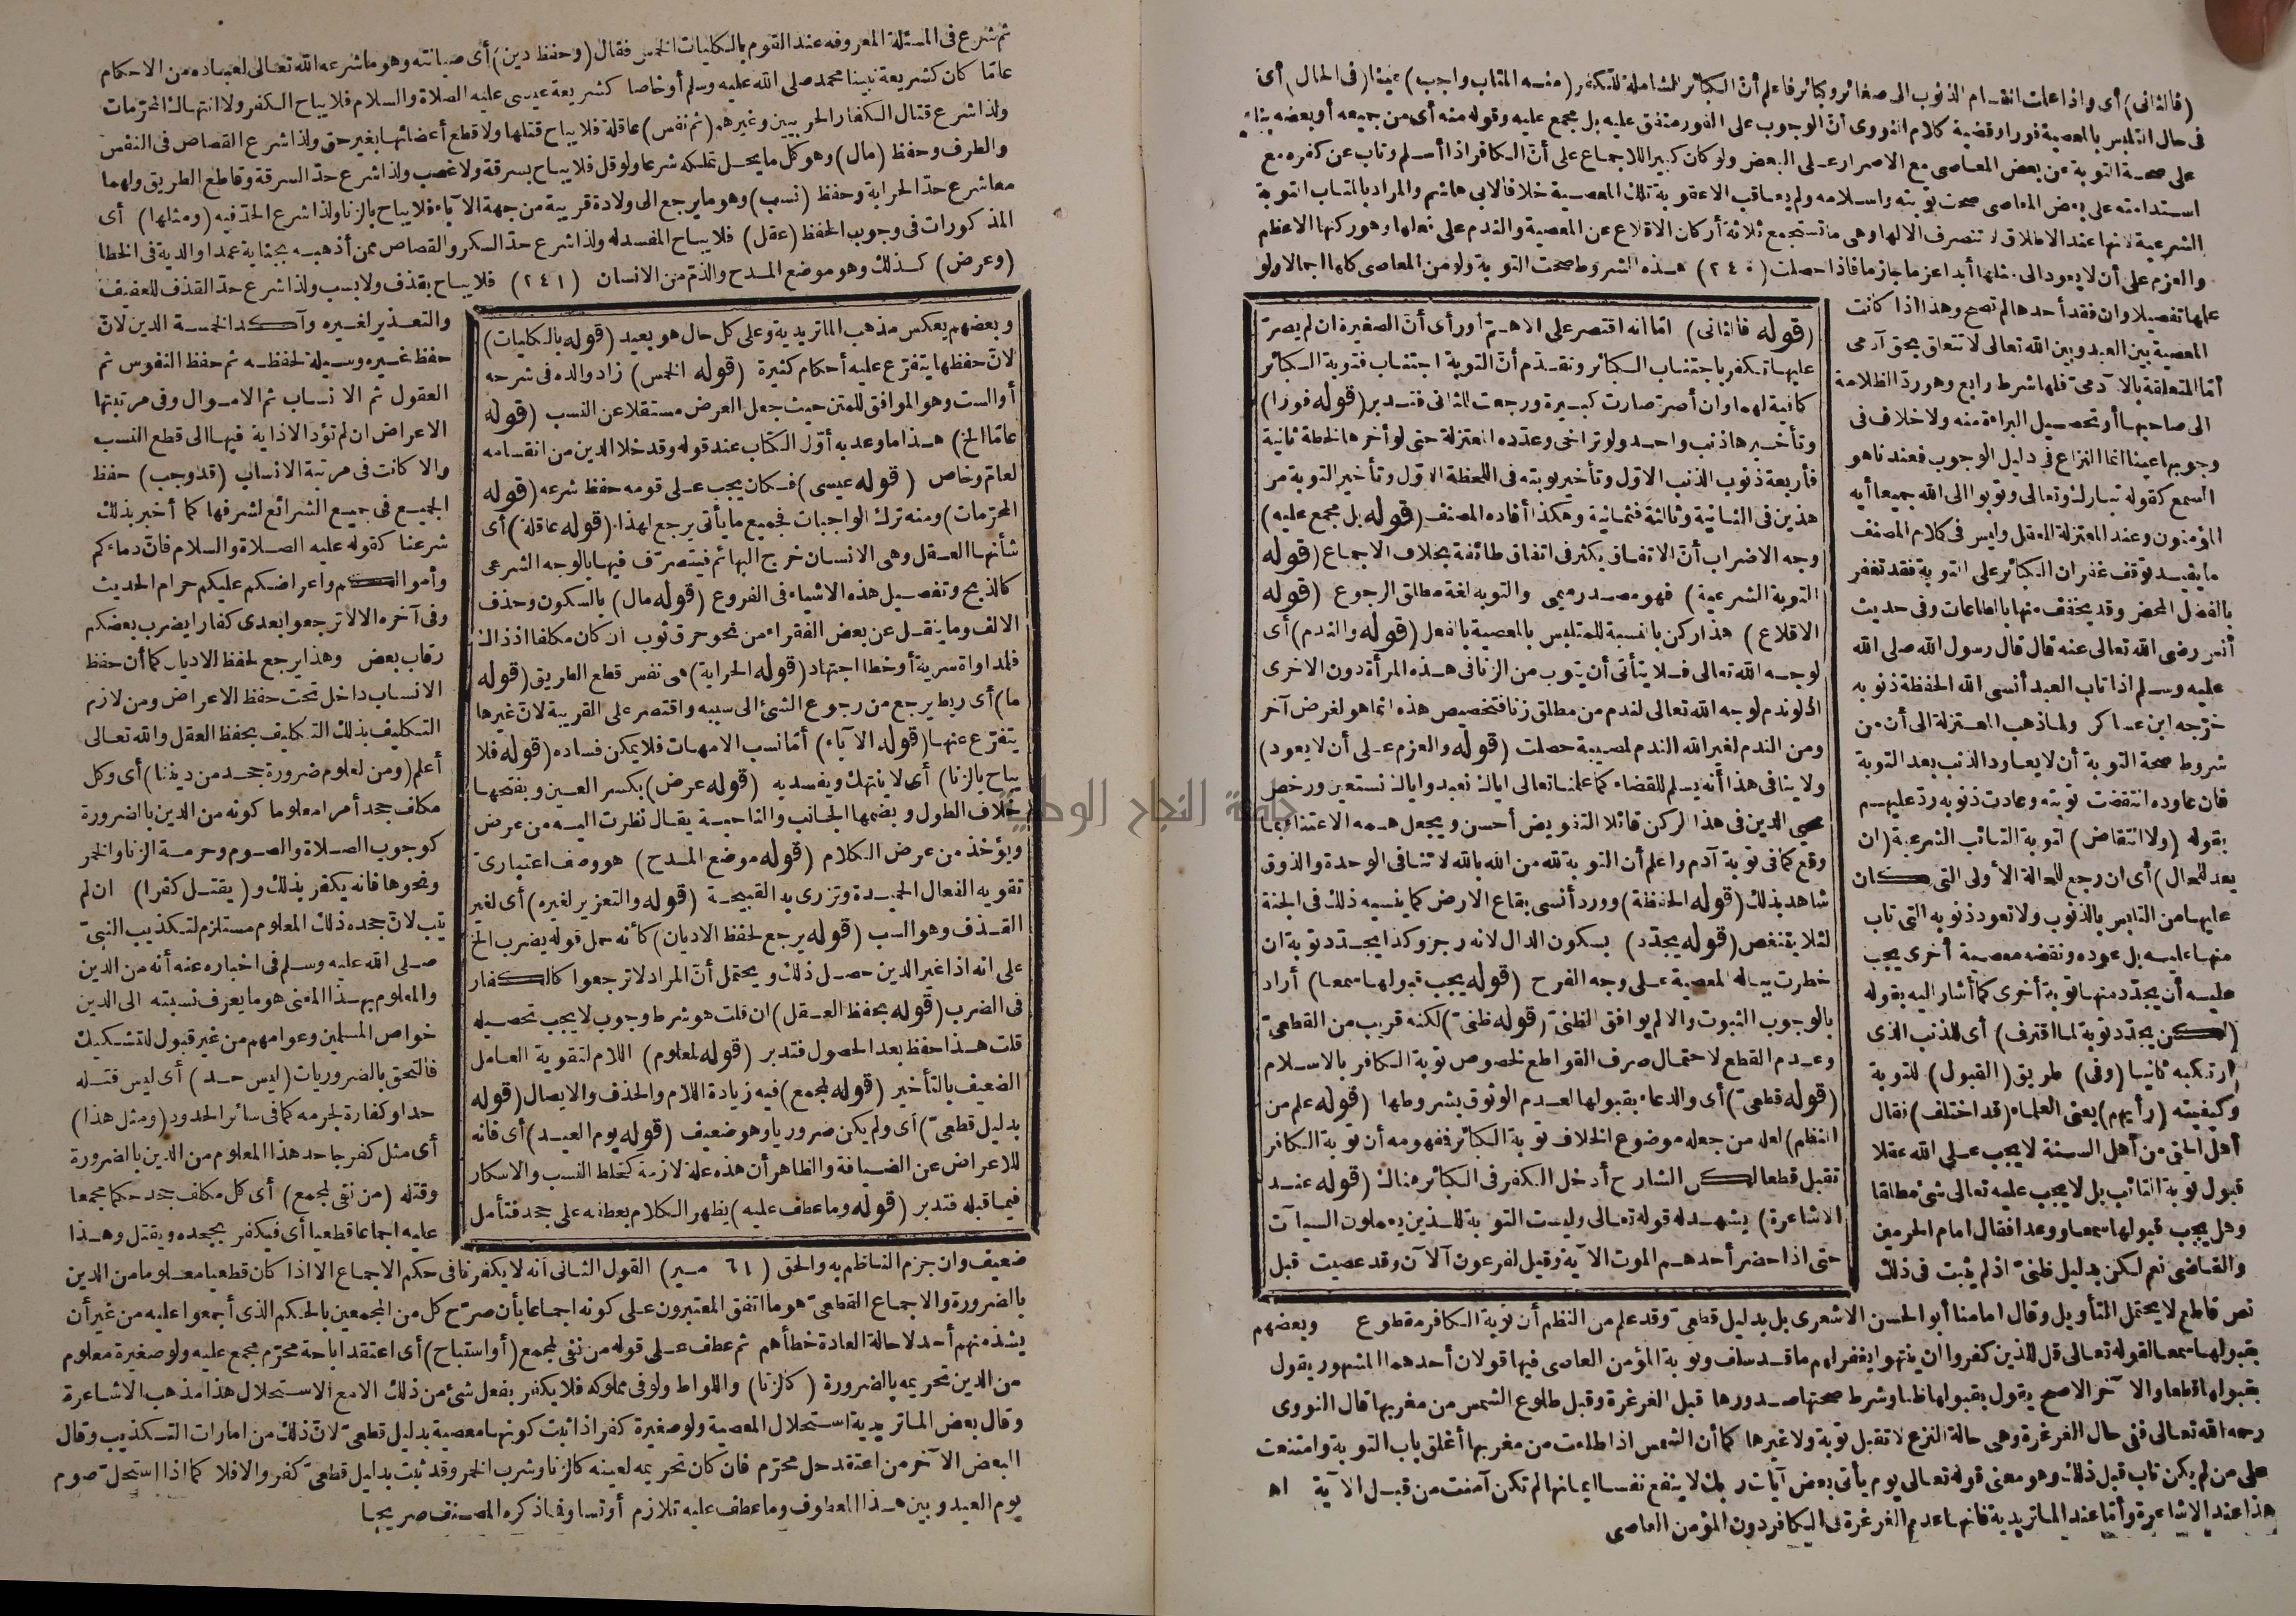 (فالثانى) أى واذا علمت انقسام الذنوب الى صغائر وكبائر فاعلم أن الكبائر الشاملة للكفر (منه المتاب واجب) عينا (فى الحال) أى
فى حال التلبس بالمعصية فورا وقضية كلام النووى أن الوجوب على الفور متفق عليه بل مجمع عليه وقوله منه أى من جميعه أو بعضه بناء
على صحة التوبة عن بعض المعاصى مع الاصرار على البعض ولو كان كبيرا للاجماع على أن الكافر اذا أسلم وتاب عن كفره مع
استدامته على بعض المعاصى صحت توبته واسلامه ولم يعاقب الا عقوبة تلك المعصية خلافا لابى هاشم والمراد بالمتاب التوبة
الشرعية لانها عند الاطلاق لا تنصرف الا لها وهى ما تستجمع ثلاثة أركان الاقلاع عن المعصية والندم على فعلها وهو ركنها الاعظم
والعزم على أن لا يعود الى مثلها أبدا عزما جازما فاذا حصلت (٢٤٠) هذه الشروط صحت التوبة ولو من المعاصى كلها اجمالا ولو
علمها تفصيلا وان فقد أحدها لم تصح وهذا اذا كانت
المعصية بين العبد وبين الله تعالى لا تتعلق بحق آدمى
أما المتعلقة بالآدمى فلها شرط رابع وهو رد الظلامة
الى صاحبها أو تحصيل البراءة منه ولا خلاف فى
وجوبها عينا انما النزاع فى دليل الوجوب فعندنا هو
السمع كقوله تبارك وتعالى وتوبوا الى الله جميعا أيه
المؤمنون وعند المعتزلة العقل وليس فى كلام المصنف
ما يفيد توقف غفران الكبائر على التوبة فقد تغفر
بالفضل المحض وقد يخفف منها بالطاعات وفى حديث
أنس رضى الله تعالى عنه قال قال رسول الله صلى الله
عليه وسلم اذا تاب العبد أنسى الله الحفظة ذنوبه
خرجه ابن عساكر ولما ذهب المعتزلة الى أن من
شروط صحة التوبة أن لا يعاود الذنب بعد التوبة
فان عاوده انتقضت توبته وعادت ذنوبه رد عليهم
بقوله (ولا انتقاض) لتوبة التائب الشرعية (ان
يعد للحال) أى ان رجع للحالة الأولى التى كان
عليها من التلبس بالذنوب ولا تعود ذنوبه التى تاب
منها عليه بل عوده ونقضه معصية أخرى يجب
عليه أن يجدد منها توبة أخرى كما أشار اليه بقوله
(لكن يجدد توبة لما اقترف) أى للذنب الذى
ارتكبه ثانيا (وفى) طريق (القبول) للتوبة
وكيفيته (رأيهم) يعنى العلماء (قد اختلف) فقال
أهل الحق من أهل السنة لا يجب على الله عقلا
قبول توبة التائب بل لا يجب عليه تعالى شئ مطلقا
وهل يجب قبولها سمعا ووعدا فقال امام الحرمين
والقاضى نعم لكن بدليل ظنى اذ لم يثبت فى ذلك
(قوله فالثانى) اما انه اقتصر على الاهم أو رأى أن الصغيرة ان لم يصر
عليها تكفر باجتناب الكبائر وتقدم أن التوبة اجتناب فتوبة الكبائر
كافية لهما وان أصر صارت كبيرة ورجعت للثانى فتدبر (قوله فورا)
وتأخيرها ذنب واحد ولو تراخى وعدده المعتزلة حتى لو أخرها لحظة ثانية
فأربعة ذنوب الذنب الاول وتأخير توبته فى اللحظة الاول وتأخير التوبة من
هذين فى الثانية وثالثة فثمانية وهكذا أفاده المصنف (قوله بل مجمع عليه)
وجه الاضراب أن الاتفاق يكثر فى اتفاق طائفة بخلاف الاجماع (قوله
التوبة الشرعية) فهو مصدر ميمى والتوبة لغة مطلق الرجوع (قوله
الاقلاع) هذا ركن بالنسبة للمتلبس بالمعصية بالفعل (قوله والندم) أى
لوجه الله تعالى فلا يتأتى أن يتوب من الزنا فى هذه المرأة دون الاخرى
اذ لو ندم لوجه الله تعالى لندم من مطلق زنا فتخصيص هذه انما هو لغرض آخر
ومن الندم لغير الله الندم لمصيبة حصلت (قوله والعزم على أن لا يعود)
ولا ينافى هذا أنه يسلم للقضاء كما علمنا تعالى اياك نعبد واياك نستعين ورخص
محيى الدين فى هذا الركن قائلا التفويض أحسن ويجعل همه الاعتناء بما
وقع كما فى توبة آدم واعلم أن التوبة لله من الله بالله لا تنافى الوحدة والذوق
شاهد بذلك (قوله الحفظة) وورد أنسى بقاع الارض كما ينسيه ذلك فى الجنة
لئلا يتنغص (قوله يجدد) بسكون الدال لانه رجز وكذا يجدد توبة ان
خطرت بباله المعصية على وجه الفرح (قوله يجب قبولها سمعا) أراد
بالوجوب الثبوت والا لم يوافق الظنى (قوله ظنى) لكنه قريب من القطعى
وعدم القطع لاحتمال صرف القواطع لخصوص توبة الكافر بالاسلام
(قوله قطعى) أى والدعاء بقبولها لعدم الوثوق بشروطها (قوله علم من
النظم) لعله من جعله موضوع الخلاف توبة الكبائر ففهومه أن توبة الكافر
تقبل قطعا لكن الشارح أدخل الكفر فى الكبائر هناك (قوله عند
الاشاعرة) يشهد له قوله تعالى وليست التوبة للذين يعملون السيآت
حتى اذا حضر أحدهم الموت الآية وقيل لفرعون آلآن وقد عصيت قبل
نص قاطع لا يحتمل التأويل وقال امامنا أبو الحسن الاشعرى بل بدليل قطعى وقد علم من النظم أن توبة الكافر مقطوع وبعضهم
بقبولها سمعا لقوله تعالى قل للذين كفروا ان ينتهوا يغفر لهم ما قد سلف وتوبة المؤمن العاصى فيها قولان أحدهما المشهور يقول
بقبولها قطعا والآخر الاصح يقول بقبولها ظنا وشرط صحتها صدورها قبل الغرغرة وقبل طلوع الشمس من مغربها قال النووى
رحمه الله تعالى ففى حال الغرغرة وهى حالة النزع لا تقبل توبة ولا غيرها كما أن الشمس اذا طلعت من مغربها أغلق باب التوبة وامتنعت
على من لم يكن تاب قبل ذلك وهو معنى قوله تعالى يوم يأتى بعض آيات ربك لا ينفع نفسا ايمانها لم تكن آمنت من قبل الآية اه
هذا عند الاشاعرة وأما عند الماتريدية فانها عدم الغرغرة فى الكافر دون المؤمن العاصى
ثم شرع فى المسئلة المعروفة عند القوم بالكليات الخمس فقال (وحفظ دين) أى صيانته وهو ما شرعه الله تعالى لعباده من الاحكام
عاما كان كشريعة نبينا محمد صلى الله عليه وسلم أو خاصا كشريعة عيسى عليه الصلاة والسلام فلا يباح الكفر ولا انتهاك المحرمات
ولذا شرع قتال الكفار الحربيين وغيرهم (ثم نفس) عاقلة فلا يباح قتلها ولا قطع أعضائها بغير حق ولذا شرع القصاص فى النفس
والطرف وحفظ (مال) وهو كل ما يحل تملكه شرعا ولو قل فلا يباح بسرقة ولا غصب ولذا شرع حد السرقة وقاطع الطريق ولهما
معا شرع حد الحرابة وحفظ (نسب) وهو ما يرجع الى ولادة قريبة من جهة الآباء فلا يباح بالزنا ولذا شرع الحد فيه (ومثلها) أى
المذكورات فى وجوب الحفظ (عقل) فلا يباح المفسد له ولذا شرع حد السكر والقصاص ممن أذهبه بجناية عمدا والدية فى الخطا
(وعرض) كذلك وهو موضع المدح والذم من الانسان (٢٤١) فلا يباح بقذف ولا بسب ولذا شرع حد القذف للعفيف
وبعضهم يعكس مذهب الماتريدية وعلى كل حال هو بعيد (قوله بالكليات)
لان حفظها يتفرع عليه أحكام كثيرة (قوله الخمس) زاد والده فى شرحه
أو الست وهو الموافق للمتن حيث جعل العرض مستقلا عن النسب (قوله
عاما الخ) هذا ما وعد به أول الكتاب عند قوله وقد خلا الدين من انقسامه
لعام وخاص (قوله عيسى) فكان يجب على قومه حفظ شرعه (قوله
المحرمات) ومنه ترك الواجبات فجميع ما يأتى يرجع لهذا (قوله عاقلة) أى
شأنها العقل وهى الانسان خرج البهائم فيتصرف فيها بالوجه الشرعى
كالذبح وتفصيل هذه الاشياء فى الفروع (قوله مال) بالسكون وحذف
الالف وما ينقل عن بعض الفقراء من نحو حرق ثوب ان كان مكلفا اذ ذاك
فلمداواة سرية أو خطا اجتهاد (قوله الحرابة) هى نفس قطع الطريق (قوله
ما) أى ربط يرجع من رجوع الشئ الى سببه واقتصر على القريبة لان غيرها
يتفرع عنها (قوله الآباء) أما نسب الامهات فلا يمكن فساده (قوله فلا
يباح بالزنا) أى لا ينتهك ويفسد به (قوله عرض) بكسر العين وبفتحها
خلاف الطول وبضمها الجانب والناحية يقال نظرت اليه من عرض
ويؤخذ من عرض الكلام (قوله موضع المدح) هو وصف اعتبارى
تقويه الفعال الحميدة وتزرى به القبيحة (قوله والتعزير لغيره) أى لغير
القذف وهو السب (قوله يرجع لحفظ الاديان) كأنه حمل قوله يضرب الخ
على انه اذا غير الدين حصل ذلك ويحتمل أن المراد لا ترجعوا كالكفار
فى الضرب (قوله بحفظ العقل) ان قلت هو شرط وجوب لا يجب تحصيله
قلت هذا حفظ بعد الحصول فتدبر (قوله لمعلوم) اللام لتقوية العامل
الضعيف بالتأخير (قوله لمجمع) فيه زيادة اللام والحذف والايصال (قوله
بدليل قطعى) أى ولم يكن ضروريا وهو ضعيف (قوله يوم العيد) أى فانه
للاعراض عن الضيافة والظاهر أن هذه علة لازمة كخلط النسب والاسكار
فيما قبله فتدبر (قوله وما عطف عليه) يظهر الكلام بعطفه على جحد فتأمل
والتعذير لغيره وآكد الخمسة الدين لان
حفظ غيره وسيلة لحفظه ثم حفظ النفوس ثم
العقول ثم الانساب ثم الاموال وفى مرتبتها
الاعراض ان لم تؤد الاذاية فيها الى قطع النسب
والا كانت فى مرتبة الانساب (قد وجب) حفظ
الجميع فى جميع الشرائع لشرفها كما أخبر بذلك
شرعنا كقوله عليه الصلاة والسلام فان دماءكم
وأموالكم واعراضكم عليكم حرام الحديث
وفى آخره الا لا ترجعوا بعدى كفارا يضرب بعضكم
رقاب بعض وهذا يرجع لحفظ الاديان كما أن حفظ
الانساب داخل تحت حفظ الاعراض ومن لازم
التكليف بذلك التكليف بحفظ العقل والله تعالى
أعلم (ومن لمعلوم ضرورة جحد من ديننا) أى وكل
مكلف جحد أمرا معلوما كونه من الدين بالضرورة
كوجوب الصلاة والصوم وحرمة الزنا والخمر
ونحوها فانه يكفر بذلك و (يقتل كفرا) ان لم
يتب لان جحده ذلك المعلوم مستلزم لتكذيب النبى
صلى الله عليه وسلم فى اخباره عنه أنه من الدين
والمعلوم بهذا المعنى هو ما يعرف نسبته الى الدين
خواص المسلمين وعوامهم من غير قبول للتشكيك
فالتحق بالضروريات (ليس حد) أى ليس قتله
حدا وكفارة لجرمه كما فى سائر الحدود (ومثل هذا)
أى مثل كفر جاحد هذا المعلوم من الدين بالضرورة
وقتله (من نفى لمجمع) أى كل مكلف جحد حكما مجمعا
عليه اجماعا قطعيا أى فيكفر بجحده ويقتل وهذا
ضعيف وان جزم الناظم به والحق (٦١ مير) القول الثانى أنه لا يكفر نافى حكم الاجماع الا اذا كان قطعيا معلوما من الدين
بالضرورة والاجماع القطعى هو ما اتفق المعتبرون على كونه اجماعا بأن صرح كل من المجمعين بالحكم الذى أجمعوا عليه من غير أن
يشذ منهم أحد لاحالة العادة خطأهم ثم عطف على قوله من نفى لمجمع (أو استباح) أى اعتقد اباحة محرم مجمع عليه ولو صغيرة معلوم
من الدين تحريمه بالضرورة (كالزنا) واللواط ولو فى مملوكه فلا يكفر بفعل شئ من ذلك الا مع الاستحلال هذا مذهب الاشاعرة
وقال بعض الماتريدية استحلال المعصية ولو صغيرة كفر اذا ثبت كونها معصية بدليل قطعى لان ذلك من امارات التكذيب وقال
البعض الآخر من اعتقد حل محرم فان كان تحريمه لعينه كالزنا وشرب الخمر وقد ثبت بدليل قطعى كفر والا فلا كما اذا استحل صوم
يوم العيد وبين هذا المعطوف وما عطف عليه تلازم أو تساو فما ذكره المصنف صريحا
جامعة النجاح الوطنية